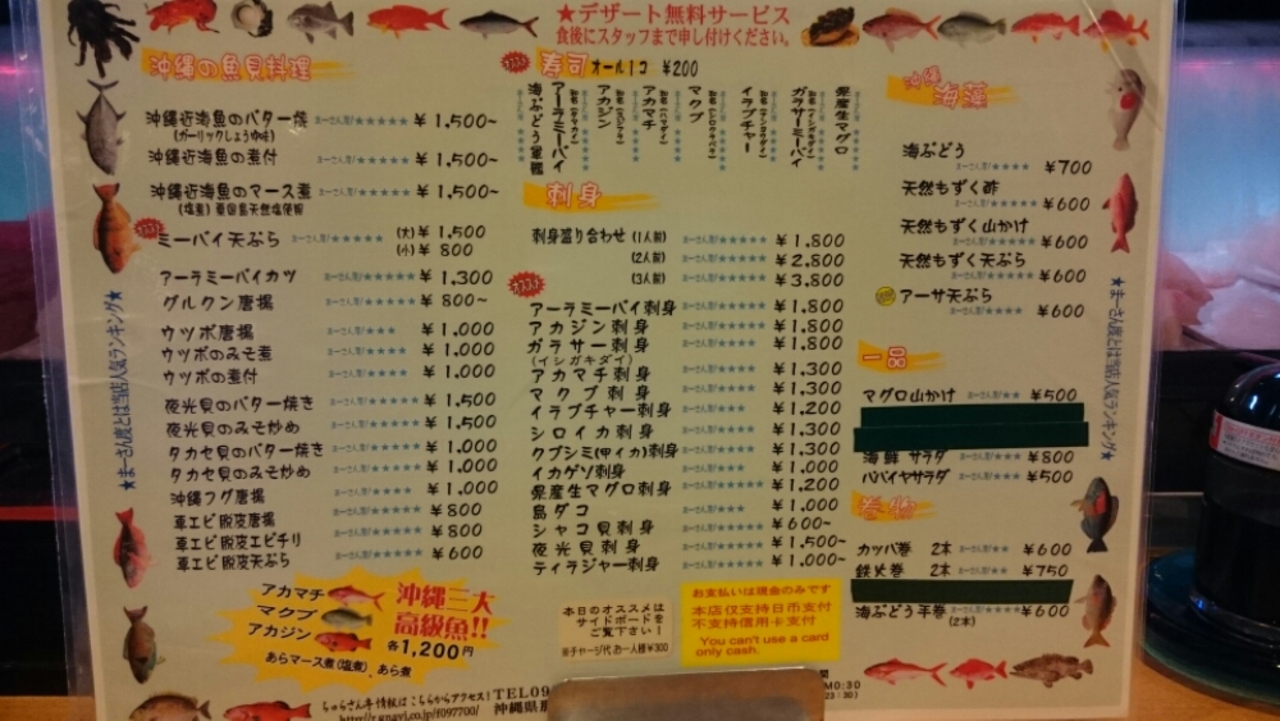 ★デザート無料サービス
食後にスタッフまで申し付けください。
沖縄の魚貝料理
沖縄近海魚のバター焼 まーさん度/★★★★★ ¥1,500~
(ガーリックしょうゆ味)
沖縄近海魚の煮付 まーさん度/★★★★★ ¥1,500~
沖縄近海魚のマース煮 まーさん度/★★★★★ ¥1,500~
(塩煮)粟国島天然塩使用
オススメ
ミーバイ天ぷら まーさん度/★★★★★ (大)¥1,500
(小)¥800
アーラミーバイカツ まーさん度/★★★★★ ¥1,300
グルクン唐揚 まーさん度/★★★★★ ¥800~
ウツボ唐揚 まーさん度/★★★ ¥1,000
ウツボのみそ煮 まーさん度/★★★★ ¥1,000
ウツボの煮付 まーさん度/★★★★ ¥1,000
夜光貝のバター焼き まーさん度/★★★★★ ¥1,500
夜光貝のみそ炒め まーさん度/★★★★★ ¥1,500
タカセ貝のバター焼き まーさん度/★★★★★ ¥1,000
タカセ貝のみそ炒め まーさん度/★★★★★ ¥1,000
沖縄フグ唐揚 まーさん度/★★★★ ¥1,000
車エビ脱皮唐揚 まーさん度/★★★★★ ¥800
車エビ脱皮エビチリ まーさん度/★★★★★ ¥800
車エビ脱皮天ぷら まーさん度/★★★★★ ¥600
アカマチ
マクブ
アカジン
沖縄三大
高級魚!!
各1,200円
あらマース煮(塩煮)、あら煮
オススメ
寿司 オール1コ ¥200
県産生マグロ
ガラサーミーバイ
イラブチャー
マクブ
アカマチ
アカジン
アーラミーバイ
海ぶどう軍艦
刺身
刺身盛り合わせ(1人前) まーさん度/★★★★★ ¥1,800
(2人前) まーさん度/★★★★★ ¥2,800
(3人前) まーさん度/★★★★★ ¥3,800
オススメ
アーラミーバイ刺身 まーさん度/★★★★★ ¥1,800
アカジン刺身 まーさん度/★★★★★ ¥1,800
ガラサー刺身 まーさん度/★★★★ ¥1,800
(イシガキダイ)
アカマチ刺身 まーさん度/★★★★ ¥1,300
マクブ刺身 まーさん度/★★★★ ¥1,300
イラブチャー刺身 まーさん度/★★★ ¥1,200
シロイカ刺身 まーさん度/★★★★ ¥1,300
クブシミ(甲イカ)刺身 まーさん度/★★★★ ¥1,300
イカゲソ刺身 まーさん度/★★★★ ¥1,000
県産生マグロ刺身 まーさん度/★★★★ ¥1,200
島ダコ まーさん度/★★★ ¥1,000
シャコ貝刺身 まーさん度/★★★★ ¥600~
夜光貝刺身 まーさん度/★★★★★ ¥1,500~
ティラジャー刺身 まーさん度/★★★★★ ¥1,000~
本日のオススメは
サイドボードを
ご覧下さい!
※チャージ代お一人様¥300
お支払いは現金のみです
本店仅支持日币支付
不支持信用卡支付
You can't use a card
only cash.
沖縄
海ぶどう
まーさん度/★★★★ ¥700
天然もずく酢
まーさん度/★★★★★ ¥600
天然もずく山かけ
まーさん度/★★★★ ¥600
天然もずく天ぷら
まーさん度/★★★★ ¥600
アーサ天ぷら
まーさん度/★★★★★ ¥600
一品
マグロ山かけ まーさん度/★★ ¥500
海鮮サラダ まーさん度/★★★★ ¥800
パパイヤサラダ まーさん度/★★★★ ¥500
巻物
カッパ巻 2本 まーさん度/★★ ¥600
鉄火巻 2本 まーさん度/★★★ ¥750
海ぶどう手巻 まーさん度/★★★★ ¥600
(2本)
★まーさん度とは当店人気ランキング★
★まーさん度とは当店人気ランキング★
ちゅらさん亭情報はこちらからアクセス! TEL09
http://r.gnavi.co.jp/f097700/ 沖縄県那
M0:30
23:30)